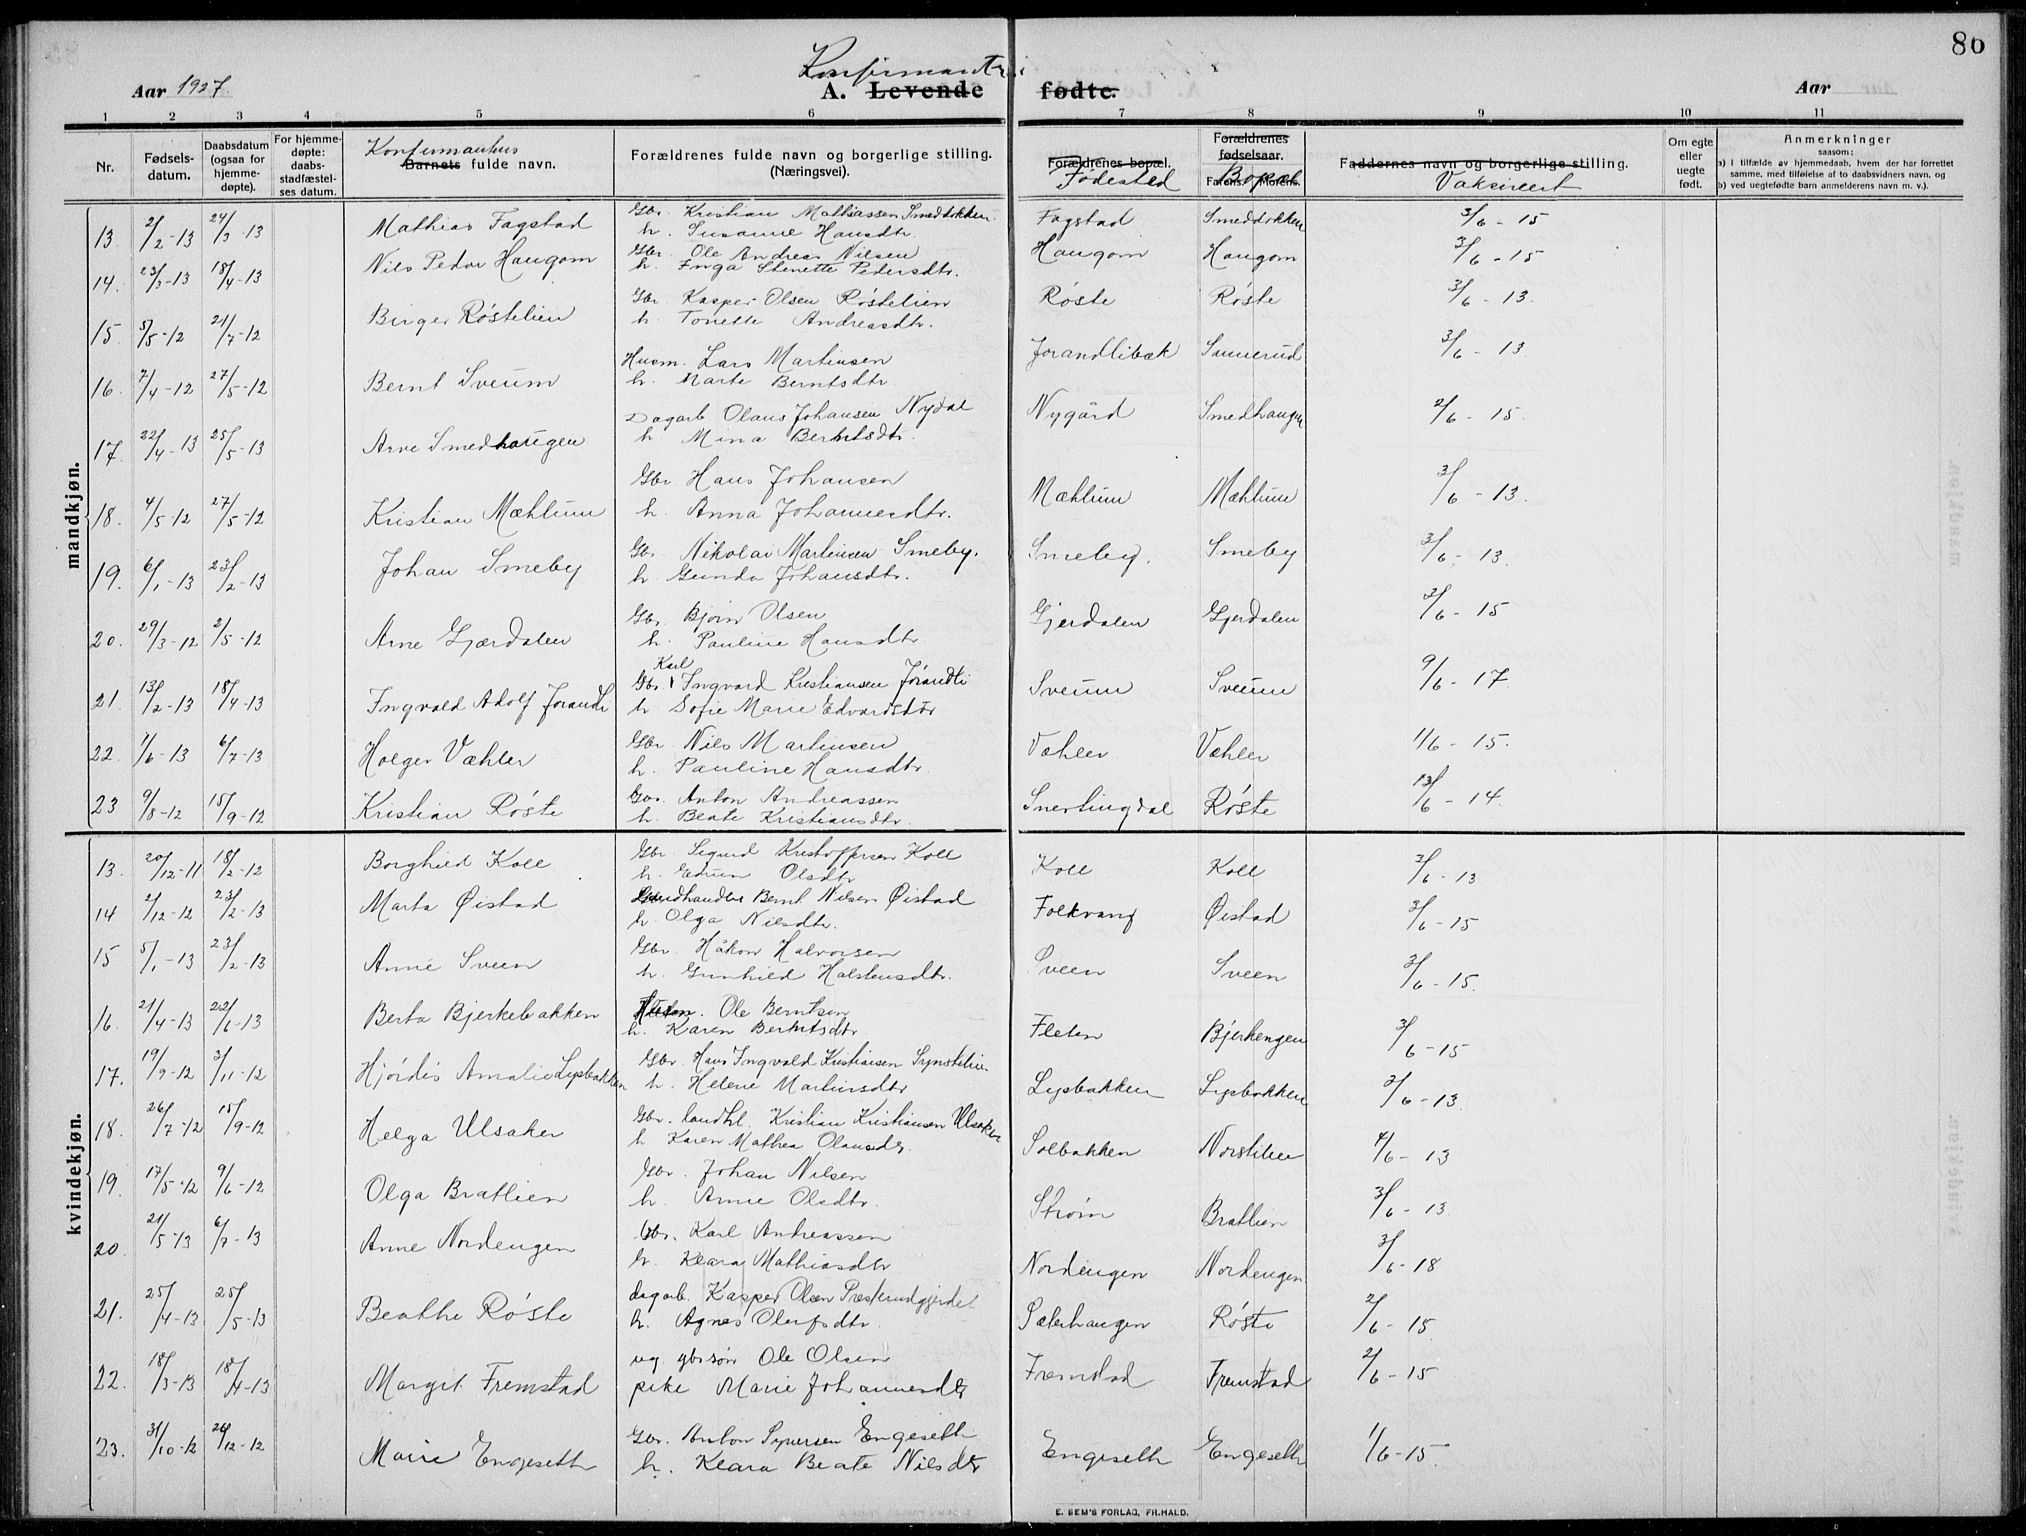 86
Konfirmanter
Aar 1927. A. Levende fødte. Aar
1 2 3 4 5 6 7 8 9 10 11
Nr. Fødselsdatum. Daabsdatum (ogsaa for hjemmedøpte). For hjemmedøpte: daabsstadfæstelses datum. Konfirmantens Barnets fulde navn. Forældrenes fulde navn og borgerlige stilling. (Næringsvei). Forældrenes bopæl. Fødested Forældrenes fødselsaar. Farens. Morens. Bopæl Faddernes navn og borgerlige stilling. Vaksinert Om egte eller uegte født. Anmerkninger saasom: a) I tilfælde av hjemmedaab, hvem der har forrettet samme, med tilføielse af to daabsvidners navn, og b) ved uegtefødte barn anmelderens navn m. v.).
mandkjøn.
13. 2/2-13 24/3-13 Mathias Fagstad Gbr. Kristian Mathiassen Smeddokken Fagstad Smeddokken 3/6-15
h. Susanne Hansdtr.
14. 23/3-13 18/4-13 Nils Peder Haugom Gbr. Ole Andreas Nilsen Haugom Haugom 3/6-15
h. Inga Stenette Pedersdtr.
15. 5/5-12 21/7-12 Birger Røstelien Gbr. Kasper Olsen Røstelien Røste Røste 3/6-13.
h. Tonette Andreasdtr.
16. 7/4-12 27/5-12 Bernt Sveum Husm. Lars Martinsen Jorandlibæk Sunnerud 3/6-13
h. Marte Berntsdtr
17. 22/4-13 25/5-13 Arve Smedhaugen Dagarb Olaus Johansen Nydal Nygård Smedhaugen 2/6-15.
h. Mina Berntsdtr.
18. 4/5-12 27/5-12 Kristian Mæhlum Gbr. Hans Johansen Mæhlum Mæhlum 3/6-13.
h. Anna Johannesdtr.
19. 6/1-13 23/2-13 Johan Smeby Gbr. Nikolai Martinsen Smeby. Smeby. Smeby 3/6-13.
h. Gunda Johansdtr.
20. 29/3-12 2/5-12 Arne Gjærdalen Gbr. Bjørn Olsen Gjerdalen Gjerdalen 2/6-15
h. Pauline Hansdtr
21. 13/2-13 18/4-13 Ingvald Adolf Jorandli Gbr. Karl Ingvard Kristiansen Jorandli Sveum Sveum 9/6-17
h. Sofie Marie Edvardsdtr
22. 1/6-13 6/7-13 Holger Væhler Gbr. Nils Martinsen Væhler Væhler 1/6-15.
h. Pauline Hansdtr.
23 9/8-12 15/9-12 Kristian Røste Gbr. Anton Andreassen Snertingdal Røste 13/6-14.
h. Beate Kristiansdtr.
kvindekjøn.
13. 20/12-11 18/2-12 Borghild Koll Gbr. Sigurd Kristoffersen Koll Koll Koll 3/6-13
h. Edrun Olsdtr
14 2/12-12 23/2-13 Marta Øistad Landhandler Bernt Nilsen Øistad Folkvang Øistad 3/6-15
h. Olga Nilsdtr.
15 5/1-13 23/2-13 Anne Sveen Gbr. Håkon Halvorsen Sveen Sveen 3/6-15.
h. Gunhild Halstensdtr.
16. 21/4-13 22/6-13 Berta Bjerkebakken Ole Berntsen Fleten Bjerkengen 3/6-15
h. Karen Berntsdtr.
17. 19/9-12 3/11-12 Hjørdis Amalie Lysbakken Gbr. Hans Ingvald Kristiansen Synstelien Lysbakken Lysbakken 3/6-13.
h. Helene Martinsdtr
18. 26/7-12 15/9-12 Helga Ulsaker Gbr. landhl. Kristian Kristiansen Ulsaker Solbakken Norstelien 4/6-13
h. Karen Mathea Olausdtr.
19. 17/5-12 9/6-12 Olga Bratlien Gbr. Johan Nilsen Strøm Bratlien 3/6-13.
h. Anne Olsdtr.
20. 21/5-13 6/7-13 Anne Nordengen Gbr. Karl Andreassen Nordengen Nordengen 3/6-18
h. Klara Mathiasdtr
21. 25/4-13 25/5-13 Beathe Røste dagarb. Kasper Olsen Præsterudgjerdet Sæterhaugen Røste 2/6-15.
h. Agnes Olufsdtr.
22. 18/3-13 18/4-13 Margit Fremstad ug. gbrsøn Ole Olsen Fremstad Fremstad 2/6-15
pike Marie Johannesdtr
23. 31/10-12 26/12-12 Marie Engeseth Gbr. Anton Syversen Engeseth Engeseth Engeseth 1/6-15.
h. Klara Beate Nilsdtr
E. SEM'S FORLAG, FR.HALD.